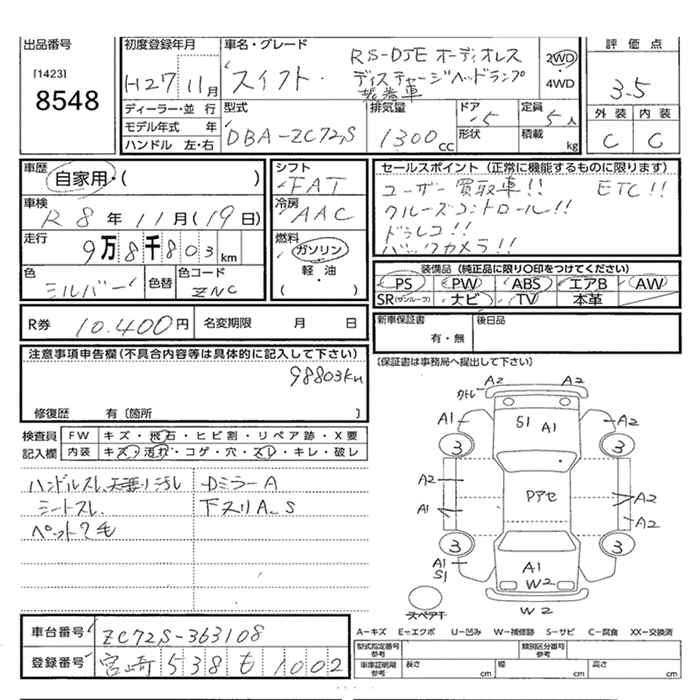 出品番号
[1423]
8548
初度登録年月
H27 11月
車名・グレード
スイフト
RS-DJE オーディオレス
ディスチャージヘッドランプ
装着車
2WD
4WD
評価点
3.5
外装 内装
C C
ディーラー・並行
モデル年式 年
ハンドル 左・右
型式
DBA-ZC72S
排気量
1300cc
ドア
5
形状
定員
5人
積載
kg
車歴
自家用・( )
車検
R8年11月(19日)
走行
9万8千803km
色
シルバー
色替
色コード
ZNC
シフト
FAT
冷房
AAC
燃料
ガソリン
軽・油
( )
セールスポイント(正常に機能するものに限ります)
ユーザー買取車!! ETC!!
クルーズコントロール!!
ドラレコ!!
バックカメラ!!
装備品(純正品に限り○印をつけてください)
PS PW ABS エアB AW
SR(サンルーフ) ナビ TV 本革
R券 10.400円 名変期限 月 日
新車保証書
有・無
後日品
[保証書は事務局へ提出して下さい]
注意事項申告欄(不具合内容等は具体的に記入して下さい)
98803km
修復歴 有〔箇所 〕
検査員
記入欄
FW キズ・飛石・ヒビ割・リペア跡・X要
内装 キズ・汚れ・コゲ・穴・スレ・キレ・破レ
ハンドルスレ 天張り汚れ
シートスレ
ペット?毛
Dミラー A
下スリA、S
A2
A2
カトレ
A1
S1
A1
A2
3
3
A2
A1
Pアセ
A2
A2
3
3
A1
S1
A1
W2
A2
W2
スペアT
A-キズ E-エクボ U-凹み W-補修跡 S-サビ C-腐食 XX-交換済
車台番号 ZC72S-363108
登録番号 宮崎 538 も 1002
型式指定番号
参考
類別区分番号
参考
車庫証明用
参考
長さ cm 幅 cm 高さ cm